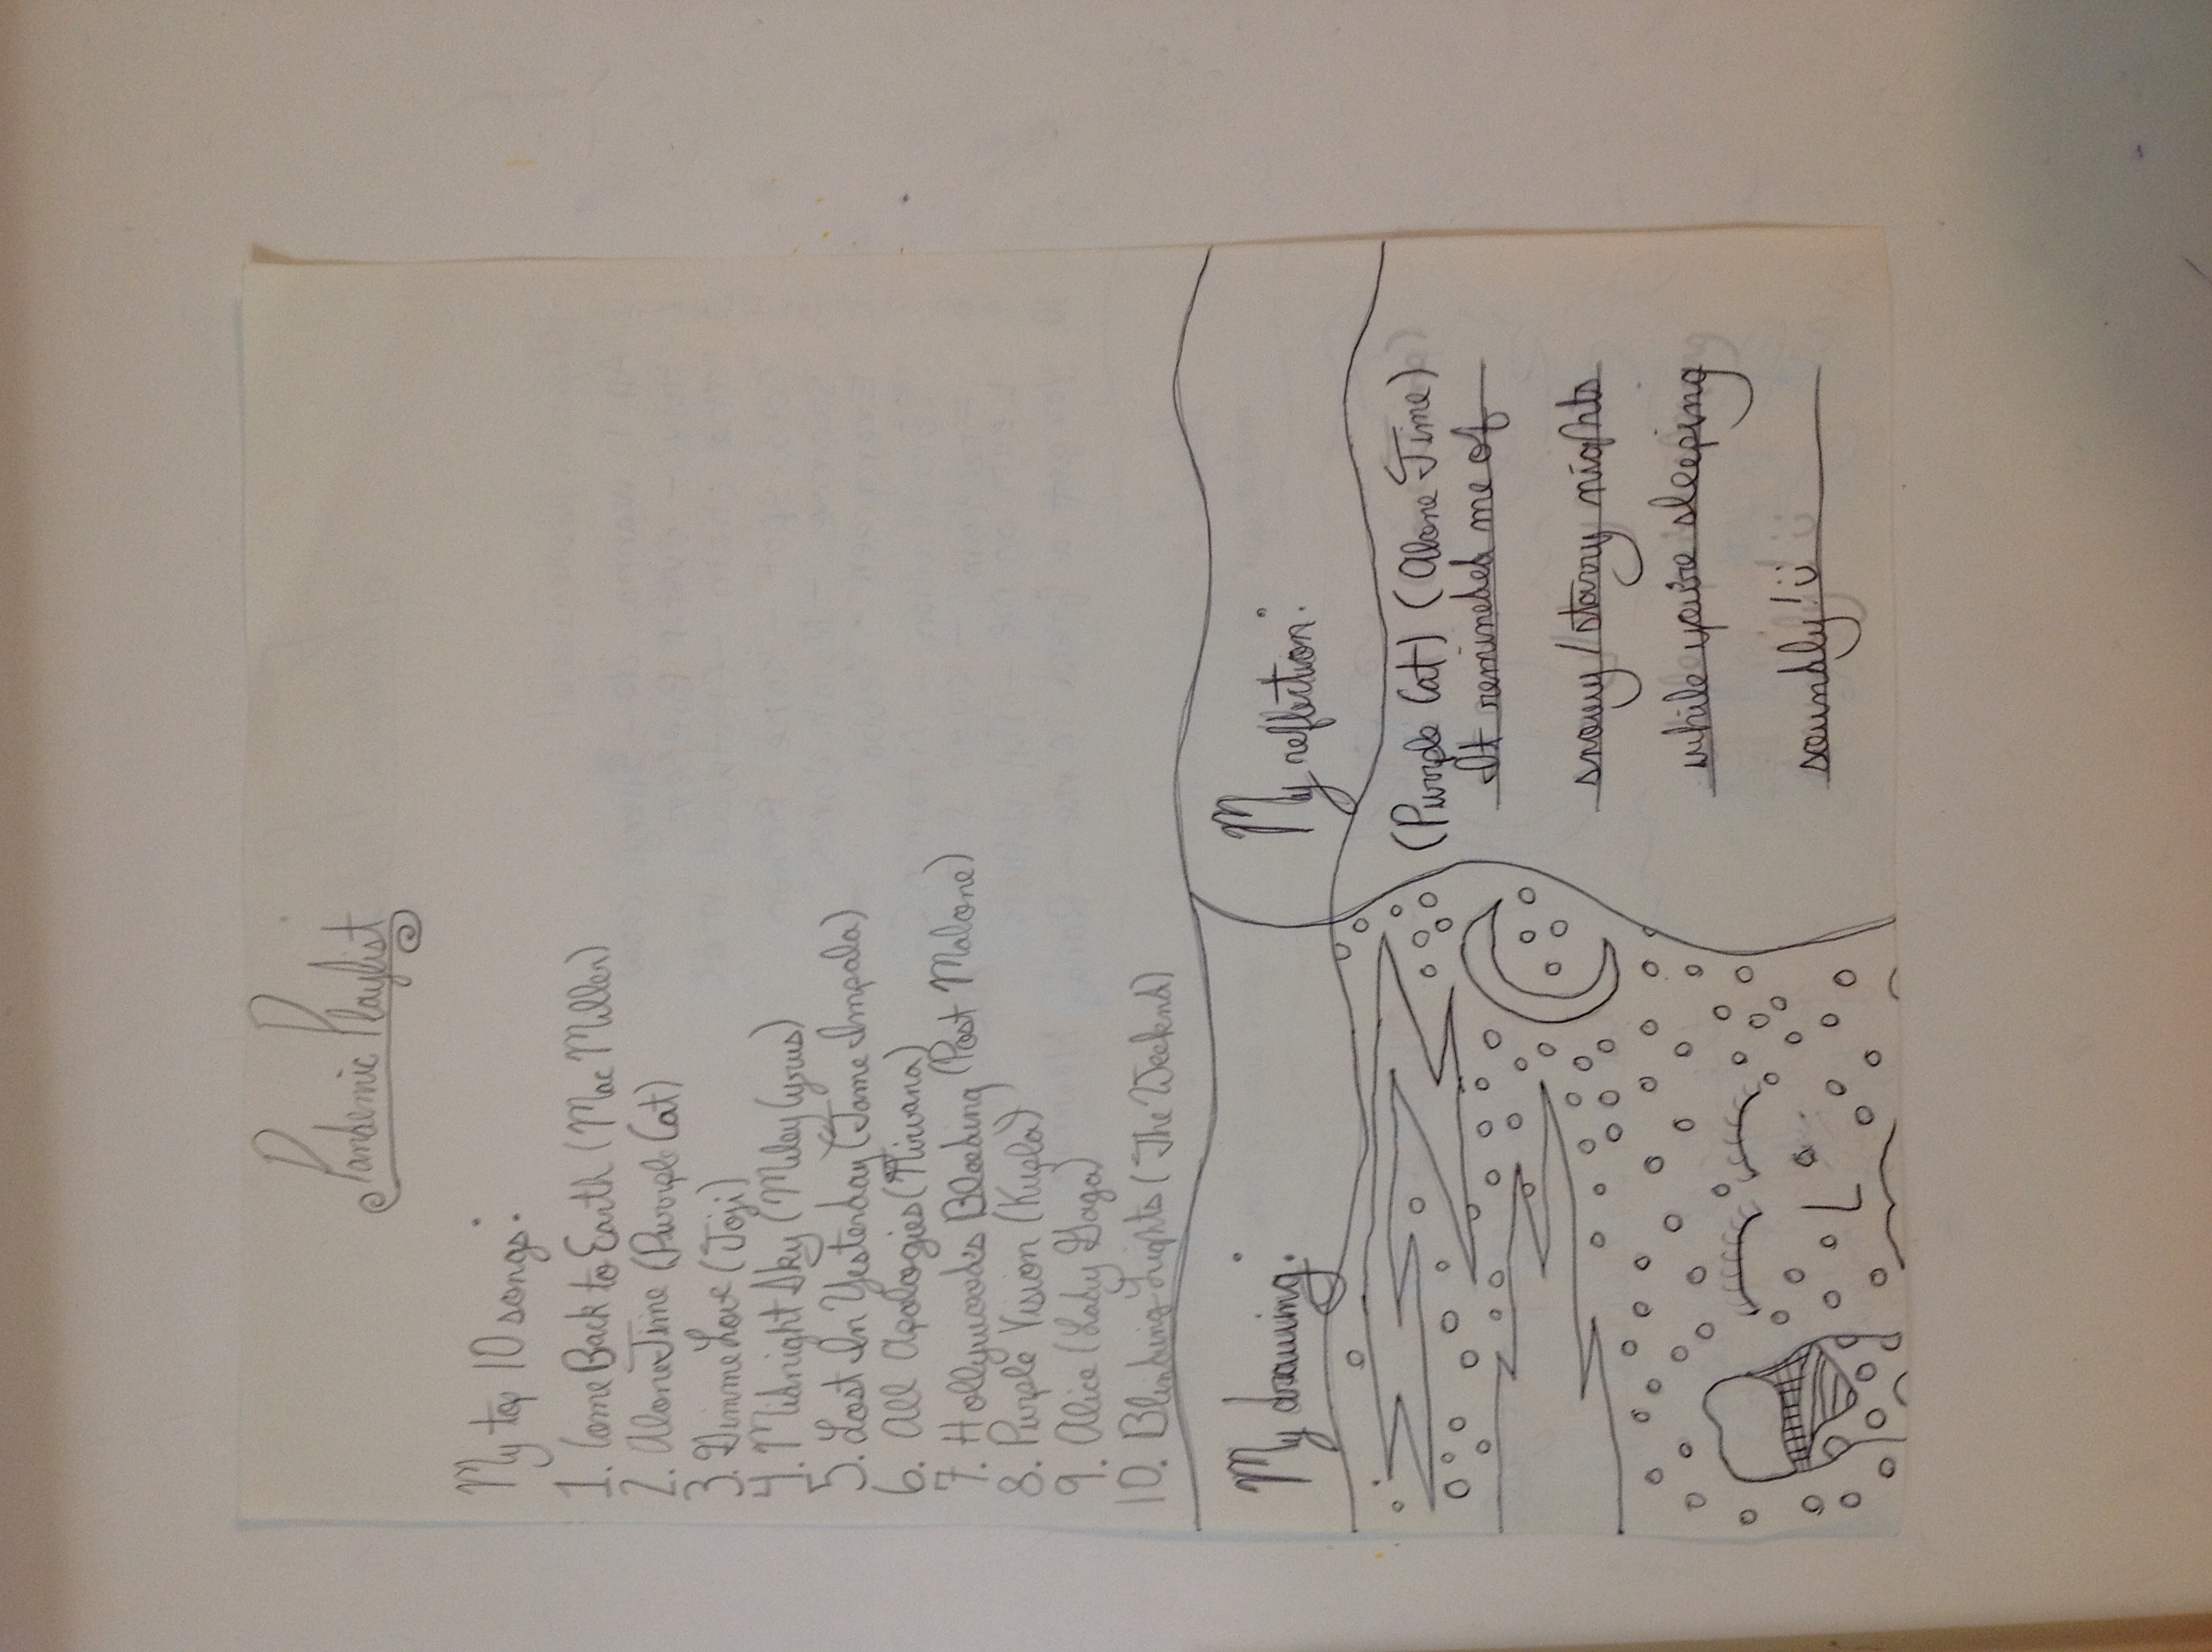 Pandemic Playlist
My top 10 songs:
1. Come Back to Earth (Mac Miller)
2. Alone Time (Purple Cat)
3. Gimme Love (Joji)
4. Midnight Sky (Miley Cyrus)
5. Lost In Yesterday (Tame Impala)
6. All Apologies (Nirvana)
7. Hollywoods Bleeding (Post Malone)
8. Purple Vision (Kupla)
9. Alice (Lady Gaga)
10. Blinding Lights (The Weeknd)
My drawing:
My reflection:
(Purple Cat) (Alone Time)
It reminded me of
snowy/starry nights
while you're sleeping
soundly! :)